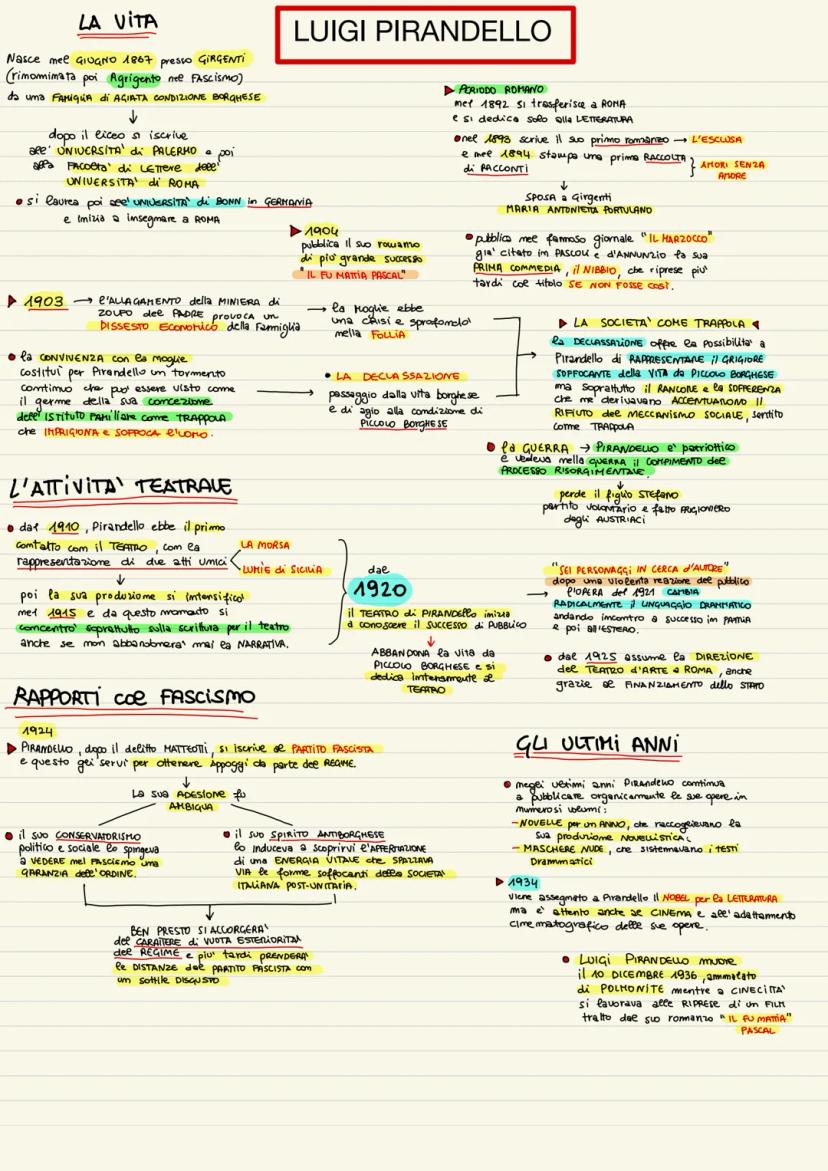 LUIGI PIRANDELLO
LA VITA
Nasce nel GIUGNO 1867 presso GIRGENTI
(rinominata poi Agrigento nel FASCISMO)
da una FAMIGLIA di AGIATA CONDIZIONE BORGHESE
↓
dopo il liceo si iscrive
all'UNIVERSITA' di PALERMO e poi
alla FACOLTA' di LETTERE dell'
UNIVERSITA' di ROMA
• si laurea poi all'UNIVERSITA' di BONN in GERMANIA
e inizia a insegnare a ROMA
▶ PERIODO ROMANO
nel 1892 si trasferisce a ROMA
e si dedica solo alla LETTERATURA
• nel 1893 scrive il suo primo romanzo → L'ESCLUSA
e nel 1894 stampa una prima RACCOLTA
di RACCONTI } AMORI SENZA
AMORE
↓
SPOSA a Girgenti
MARIA ANTONIETTA PORTULANO
▶ 1904
pubblica il suo romanzo
di piu' grande successo
"IL FU MATTIA PASCAL"
• pubblica nel famoso giornale "IL MARZOCCO"
gia' citato in PASCOLI e d'ANNUNZIO la sua
PRIMA COMMEDIA, il NIBBIO, che riprese piu'
tardi col titolo SE NON FOSSE COSI'.
▶ 1903 → l'ALLAGAMENTO della MINIERA di
ZOLFO del PADRE provoca un
DISSESTO ECONOMICO della Famiglia
→ la Moglie ebbe
una CRISI e sprofondo'
nella FOLLIA
• la CONVIVENZA con la moglie
costitui' per Pirandello un tormento
continuo che puo' essere visto come
il germe della sua concezione
dell'ISTITUTO FAMILIARE come TRAPPOLA
che IMPRIGIONA e SOFFOCA l'UOMO.
• LA DECLASSAZIONE
passaggio dalla vita borghese
e di agio alla condizione di
PICCOLO BORGHESE
▶ LA SOCIETA' COME TRAPPOLA ◀
la DECLASSAZIONE offre la possibilita' a
Pirandello di RAPPRESENTARE il GRIGIORE
SOFFOCANTE della VITA da PICCOLO BORGHESE
ma soprattutto il RANCORE e la SOFFERENZA
che ne derivavano ACCENTUANO IL
RIFIUTO del MECCANISMO SOCIALE, sentito
come TRAPPOLA
• la GUERRA → PIRANDELLO e' patriottico
e vedeva nella GUERRA il COMPIMENTO del
PROCESSO RISORGIMENTALE
↓
perde il figlio STEFANO
partito volontario e fatto PRIGIONIERO
dagli AUSTRIACI
L'ATTIVITA' TEATRALE
• dal 1910, Pirandello ebbe il primo
contatto con il TEATRO, con la
rappresentazione di due atti unici
LA MORSA
LUMIE di SICILIA
↓
poi la sua produzione si intensifico'
nel 1915 e da questo momento si
concentro' soprattutto sulla scrittura per il teatro
anche se non abbandonera' mai la NARRATIVA.
dal
1920
il TEATRO di PIRANDELLO inizia
a conoscere il SUCCESSO di PUBBLICO
↓
ABBANDONA la vita da
PICCOLO BORGHESE e si
dedica interamente al
TEATRO
"SEI PERSONAGGI IN CERCA d'AUTORE"
dopo una violenta reazione del pubblico
→ l'OPERA del 1921 CAMBIA
RADICALMENTE il LINGUAGGIO DRAMMATICO
andando incontro a successo in PATRIA
e poi all'ESTERO.
• dal 1925 assume la DIREZIONE
del TEATRO d'ARTE a ROMA, anche
grazie al FINANZIAMENTO dello STATO
RAPPORTI col FASCISMO
1924
▶ PIRANDELLO, dopo il delitto MATTEOTTI, si iscrive al PARTITO FASCISTA
e questo gli servi' per ottenere appoggi da parte del REGIME.
↓
La sua ADESIONE fu
AMBIGUA
• il suo CONSERVATORISMO
politico e sociale lo spingeva
a VEDERE nel FASCISMO una
GARANZIA dell'ORDINE.
• il suo SPIRITO ANTIBORGHESE
lo induceva a scoprirvi l'AFFERMAZIONE
di una ENERGIA VITALE che SPAZZAVA
VIA le forme soffocanti della SOCIETA'
ITALIANA POST-UNITARIA.
BEN PRESTO SI ACCORGERA'
del CARATTERE di VUOTA ESTERIORITA'
del REGIME e piu' tardi PRENDERA'
le DISTANZE dal PARTITO FASCISTA con
un sottile DISGUSTO
GLI ULTIMI ANNI
• negli ultimi anni PIRANDELLO continua
a pubblicare organicamente le sue opere in
numerosi volumi:
- NOVELLE per un ANNO, che raccoglievano la
sua produzione NOVELLISTICA;
- MASCHERE NUDE, che sistemavano i TESTI
DRAMMATICI
▶ 1934
viene assegnato a Pirandello il NOBEL per la LETTERATURA
ma e' attento anche al CINEMA e all'adattamento
cinematografico delle sue opere.
• LUIGI PIRANDELLO muore
il 10 DICEMBRE 1936, ammalato
di POLMONITE mentre a CINECITTA'
si lavorava alle RIPRESE di un FILM
tratto dal suo romanzo "IL FU MATTIA"
PASCAL